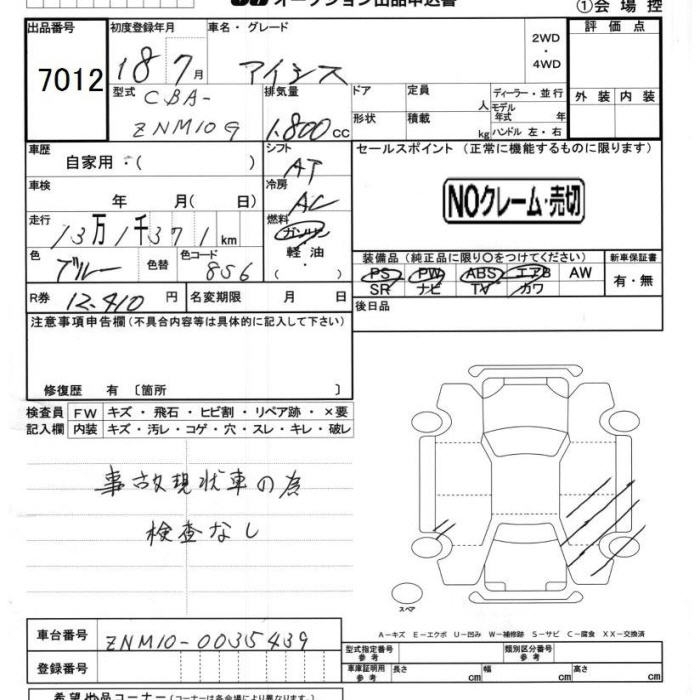 オークション出品申込書
①会場控
出品番号 初度登録年月 車名・グレード 2WD・4WD 評価点
7012 18 7月 アイシス
型式 CBA-ZNM10G 排気量 1.800cc ドア 形状 定員 人 積載 kg ディーラー・並行 モデル年式 年 ハンドル 左・右 外装 内装
車歴 自家用・( ) シフト AT セールスポイント (正常に機能するものに限ります)
車検 年 月( 日) 冷房 AC NOクレーム・売切
走行 13万1千371km 燃料 ガソリン 軽油・( )
色 ブルー 色替 色コード 8S6 装備品 (純正品に限り○をつけてください) 新車保証書
PS PW ABS エアB AW 有・無
SR ナビ TV カワ
R券 12.410円 名変期限 月 日 後日品
注意事項申告欄(不具合内容等は具体的に記入して下さい)
修復歴 有 〔箇所 〕
検査員 FW キズ・飛石・ヒビ割・リペア跡・×要
記入欄 内装 キズ・汚レ・コゲ・穴・スレ・キレ・破レ
事故現状車の為
検査なし
スペア
A-キズ E-エクボ U-凹み W-補修跡 S-サビ C-腐食 XX-交換済
車台番号 ZNM10-0035439 型式指定番号 参考 類別区分番号 参考
登録番号 車庫証明用 参考 長さ cm 幅 cm 高さ cm
希望や品コーナー(コーナーは各会場により異なります)